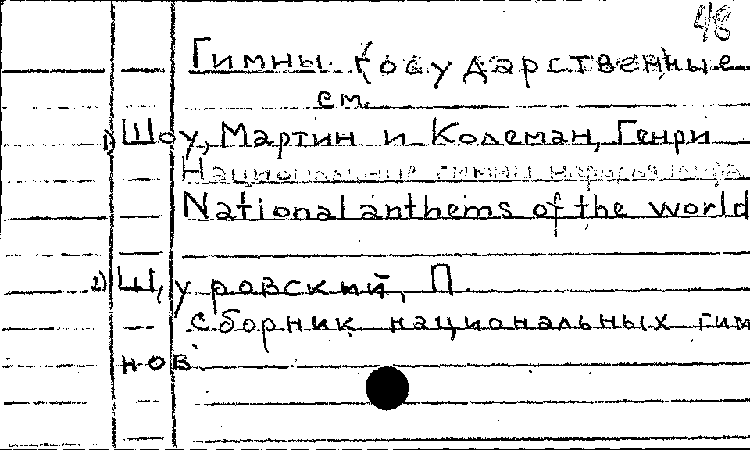 48
Гимны государственные
см.
1) Шоу, Мартин и Колеман, Генри
Национальные гимны народов мира
National anthems of the world
2) Щуровский, П.
Сборник национальных гим
нов.